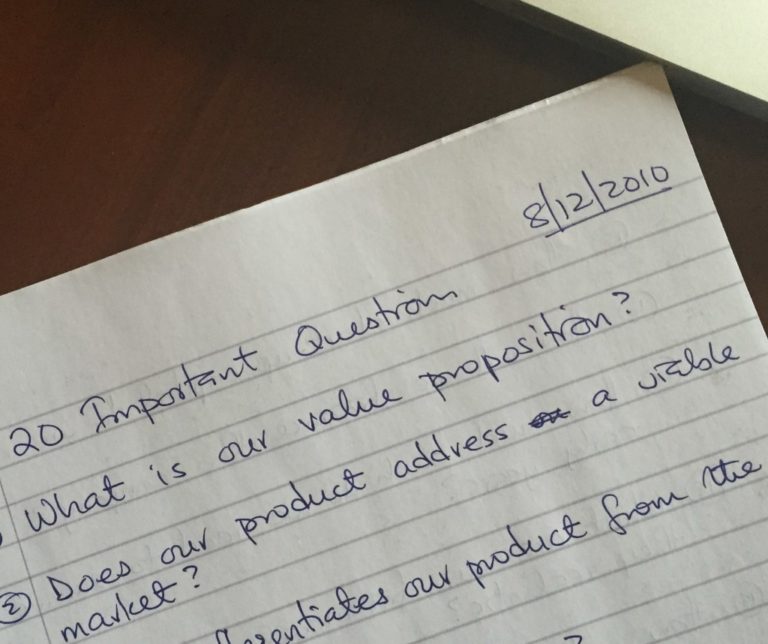 8/12/2010
20 Important Questions
What is our value proposition?
② Does our product address a viable
market?
our product from the
?